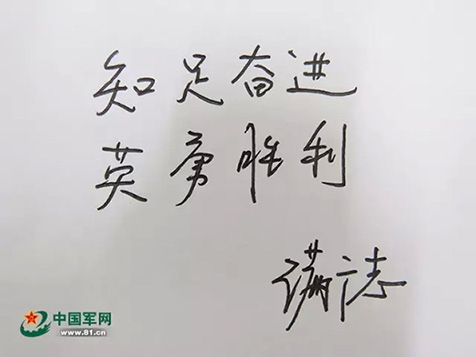 知足奋进
英勇胜利
志
中国军网
www.81.cn